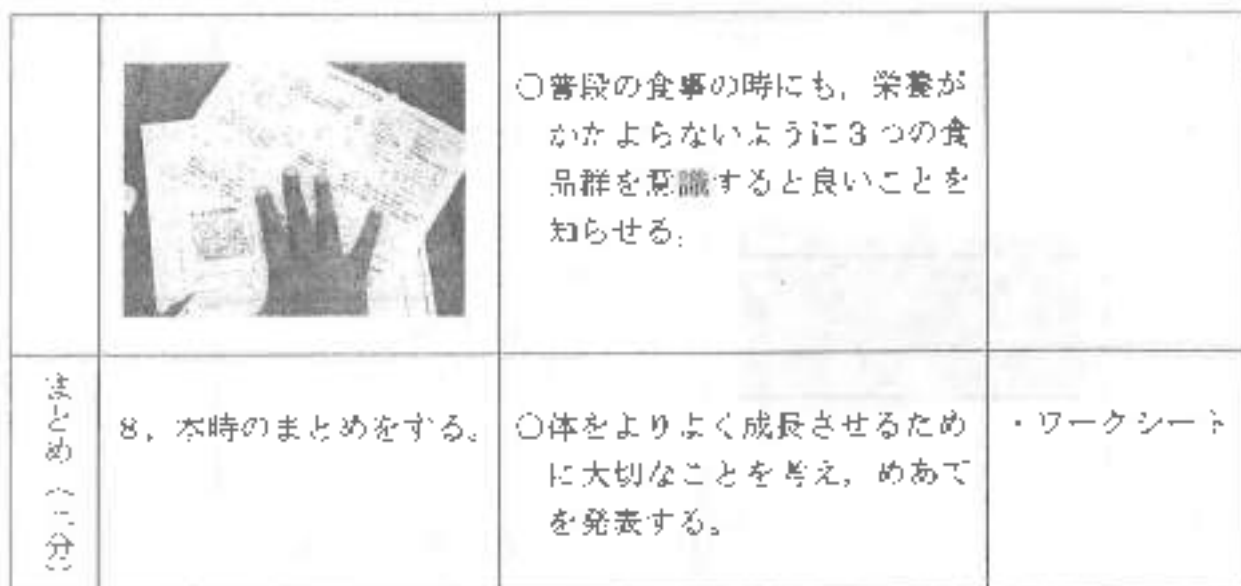 ○普段の食事の時にも，栄養が
かたよらないように3つの食
品群を意識すると良いことを
知らせる。
まとめ
分）
8，本時のまとめをする。
○体をよりよく成長させるため
に大切なことを考え，めあて
を発表する。
・ワークシート